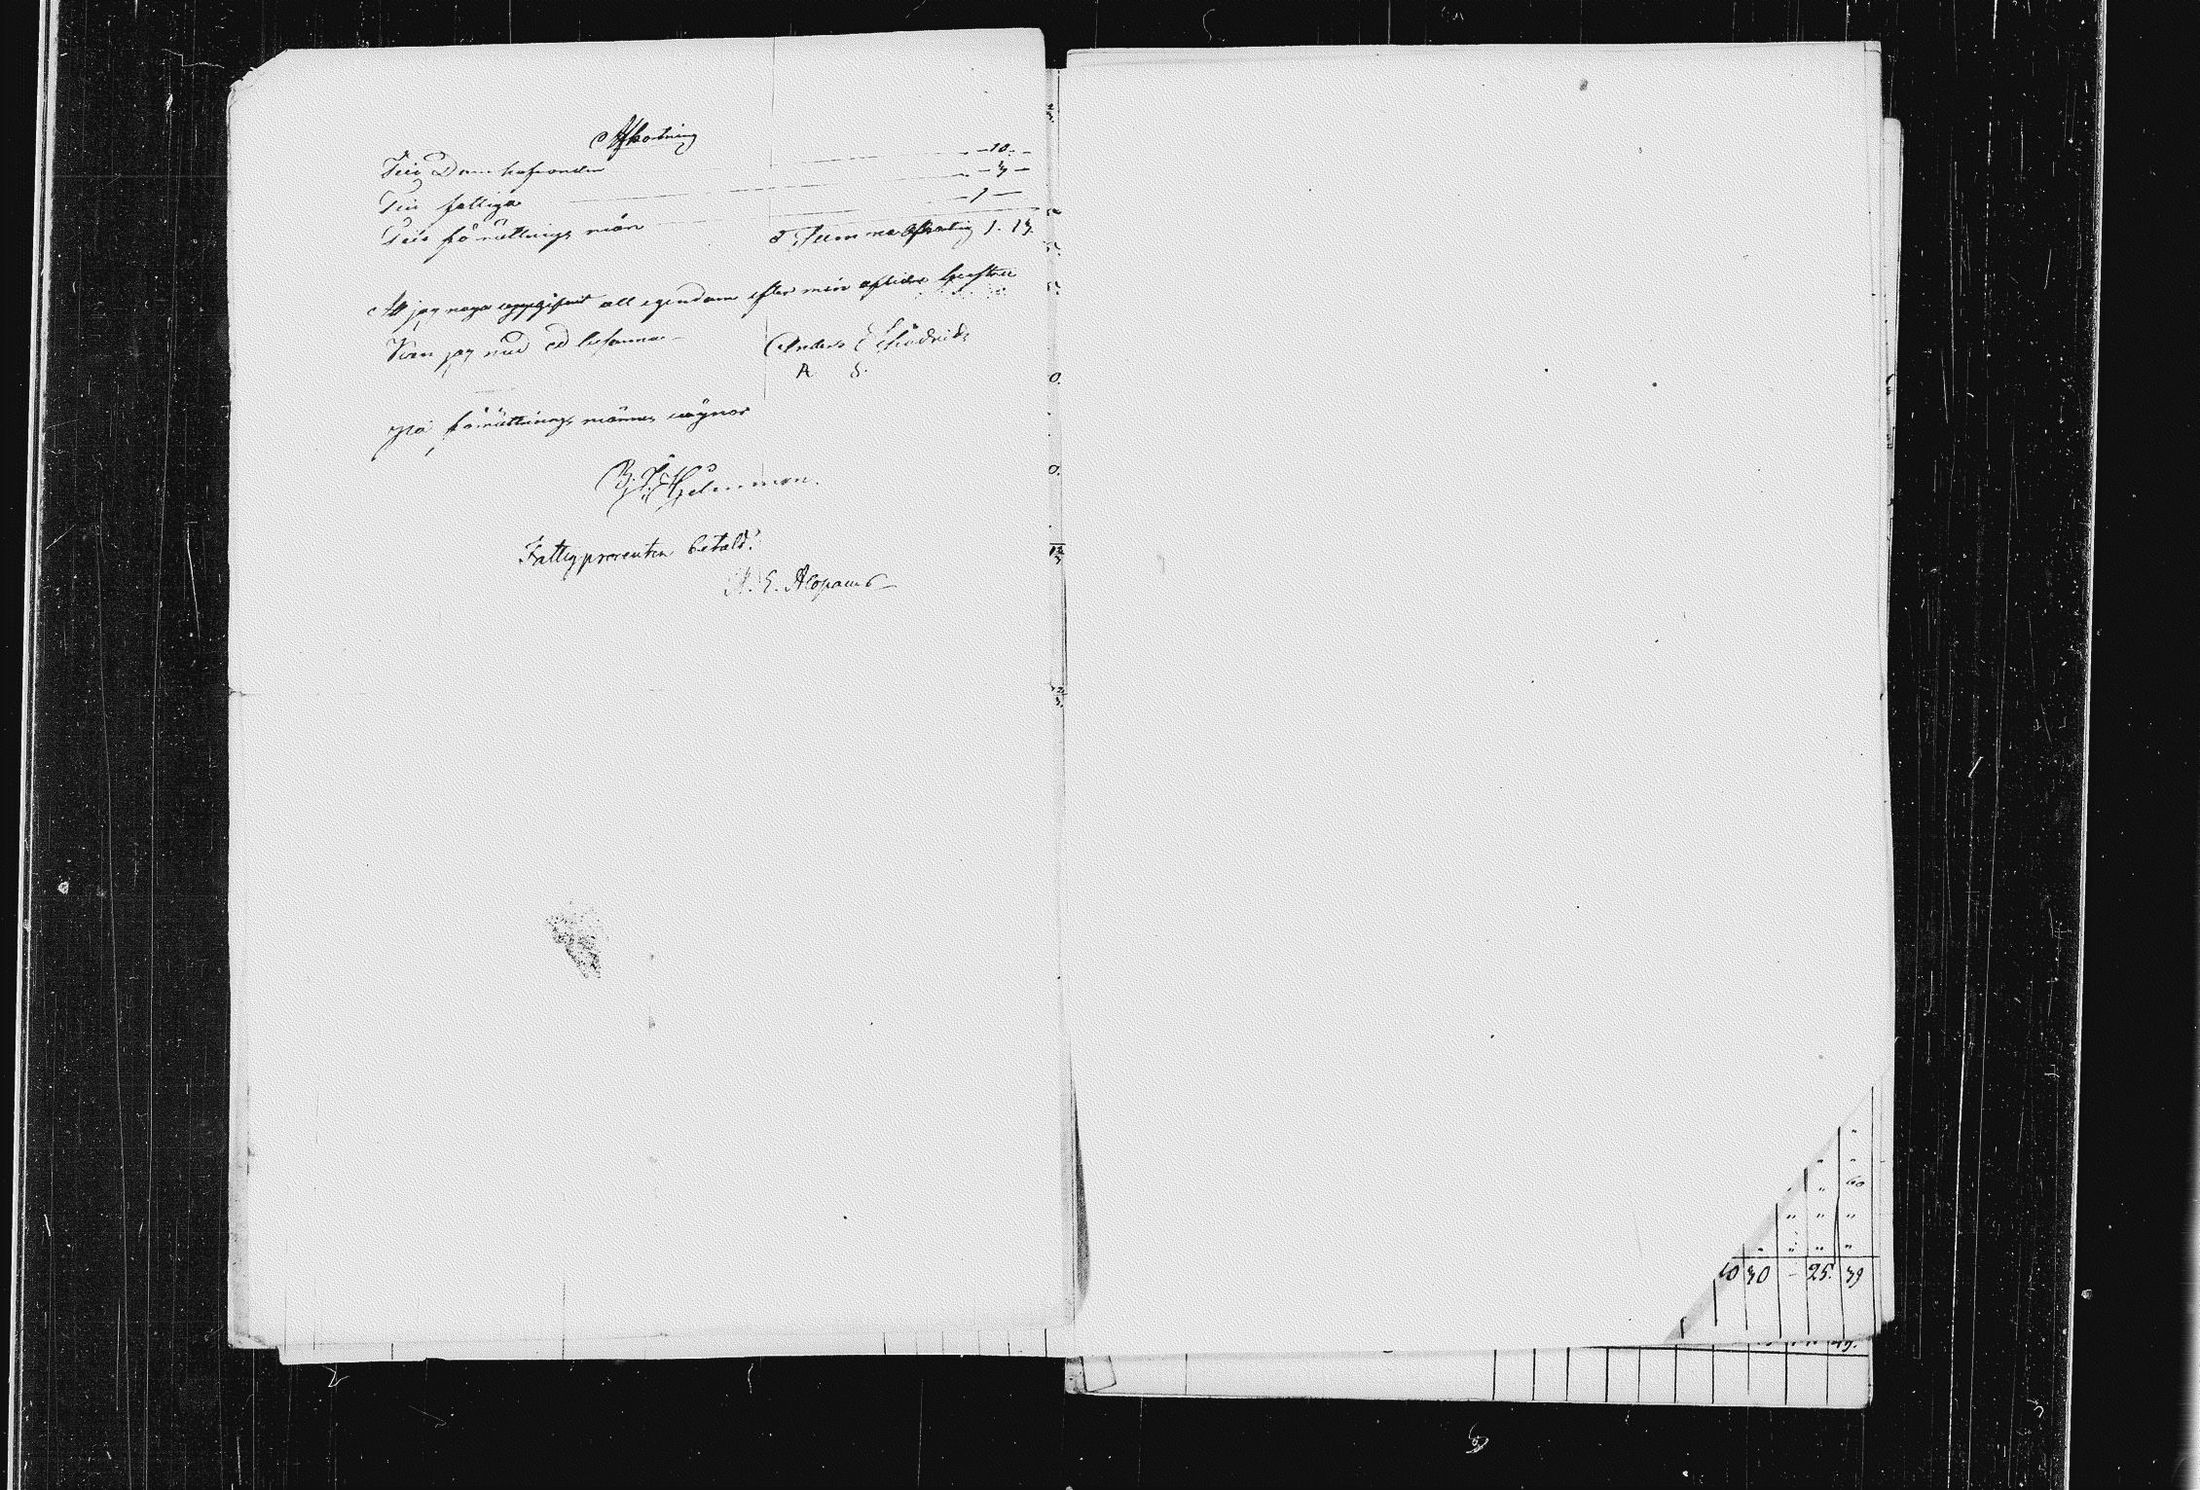 Afkortning
Till Domhafvanden - 10. -
Till fattiga - 3 -
Till förrättnings män - 1 -
Summa Afkortning 1. 13.
At jag noga uppgifvit all egendom efter min aflidne
kan jag med ed besanna - Anders
A S.
På förrättnings männes wägnar
B. J. Hjelmman.
Fattigprocenten betald.
A. E. Alopaeus
10 30 - 25. 39